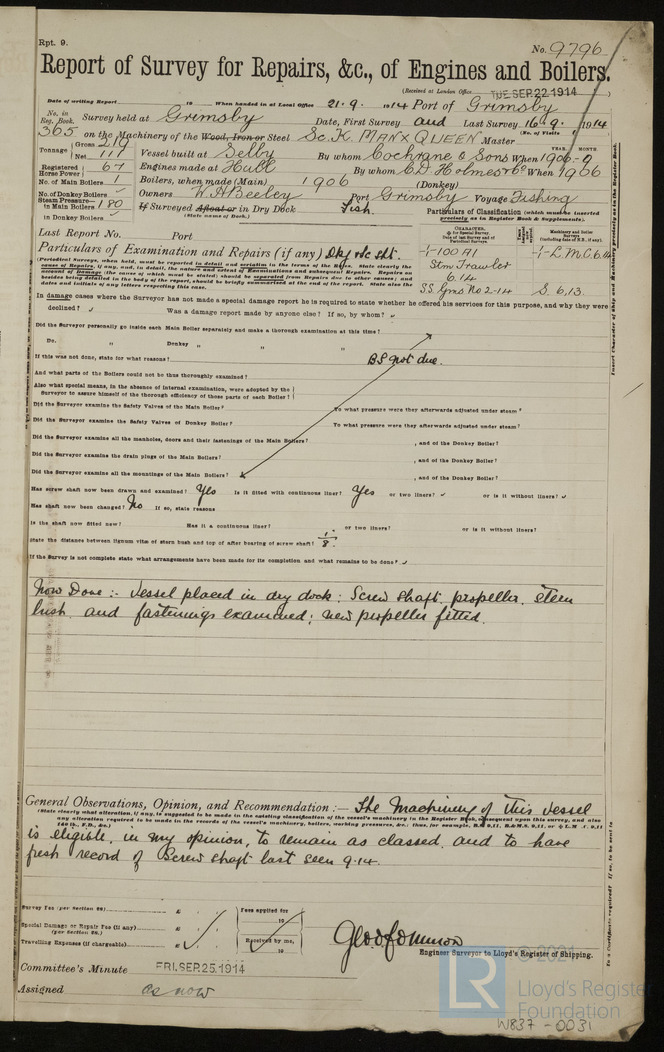 Rpt. 9.
No. 9796
Report of Survey for Repairs, &c., of Engines and Boilers.
(Received at London Office TUE. SEP. 22 1914)
Date of writing Report 19 When handed in at Local Office 21.9.1914 Port of Grimsby
No. in Reg. Book. Survey held at Grimsby Date, First Survey and Last Survey 16.9.1914
365 on the Machinery of the Wood, Iron or Steel Sc. K. MANX QUEEN Master (No. of Visits
Tonnage Gross 219 Net 111 Vessel built at Selby By whom Cochrane & Sons When 1906-9
YEAR. MONTH.
Registered Horse Power 67 Engines made at Hull By whom C.D. Holmes & Co When 1906
No. of Main Boilers 1 Boilers, when made (Main) 1906 (Donkey)
No. of Donkey Boilers ✓ Owners W. A. Beeley Port Grimsby Voyage Fishing
Steam Pressure in Main Boilers 180 If Surveyed Afloat or in Dry Dock Fish.
in Donkey Boilers ✓ (State name of Dock.)
Particulars of Classification (which must be inserted precisely as in Register Book & Supplements).
CHARACTER. for Special Survey Date of last Survey and of Periodical Surveys.
Machinery and Boiler Surveys (including date of N.B., if any).
Last Report No. Port
Particulars of Examination and Repairs (if any) Dkg & Sc sht.
+100A1 +L.M.C. 6.14
Stm Trawler
6.14
S.S. Gms No 2-14 S. 6.13.
(Periodical Surveys, when held, must be reported in detail and seriatim in the terms of the Rules. State clearly the causes of Repairs, if any, and, in detail, the nature and extent of Examinations and subsequent Repairs. Repairs on account of Damage (the cause of which must be stated) should be separated from Repairs due to other causes; and besides being detailed in the body of the report, should be briefly summarised at the end of the report. State also the dates and initials of any letters respecting this case.
In damage cases where the Surveyor has not made a special damage report he is required to state whether he offered his services for this purpose, and why they were
declined? ✓ Was a damage report made by anyone else? If so, by whom? ✓
Did the Surveyor personally go inside each Main Boiler separately and make a thorough examination at this time?
Do. " Donkey " " "
If this was not done, state for what reasons? BS not due.
And what parts of the Boilers could not be thus thoroughly examined?
Also what special means, in the absence of internal examination, were adopted by the Surveyor to assure himself of the thorough efficiency of those parts of each Boiler?
Did the Surveyor examine the Safety Valves of the Main Boiler? To what pressure were they afterwards adjusted under steam?
Did the Surveyor examine the Safety Valves of Donkey Boiler? To what pressure were they afterwards adjusted under steam?
Did the Surveyor examine all the manholes, doors and their fastenings of the Main Boilers? , and of the Donkey Boiler?
Did the Surveyor examine the drain plugs of the Main Boilers? , and of the Donkey Boiler?
Did the Surveyor examine all the mountings of the Main Boilers? , and of the Donkey Boiler?
Has screw shaft now been drawn and examined? Yes Is it fitted with continuous liner? Yes or two liners? ✓ or is it without liners? ✓
Has shaft now been changed? No If so, state reasons
Is the shaft now fitted new? Has it a continuous liner? or two liners? or is it without liners?
State the distance between lignum vitæ of stern bush and top of after bearing of screw shaft? 1/8
If the Survey is not complete state what arrangements have been made for its completion and what remains to be done? ✓
Now Done :- Vessel placed in dry dock: Screw shaft. propeller. stern
bush and fastenings examined; new propeller fitted.
General Observations, Opinion, and Recommendation :— The Machinery of this vessel
(State clearly what alteration, if any, is suggested to be made in the existing classification of the vessel's machinery in the Register Book, consequent upon this survey, and also any alteration required to be made in the records of the vessel's machinery, boilers, working pressures, &c.
is eligible, in my opinion, to remain as classed. and to have
fresh record of Screw shaft last seen 9.14.
Survey Fee (per Section 28) £
Fees applied for 19
Special Damage or Repair Fee (if any) (per Section 28.) £
Travelling Expenses (if chargeable) £
Received by me, 19
Engineer Surveyor to Lloyd's Register of Shipping.
Committee's Minute FRI. SEP. 25 1914
Assigned as now
Insert Character of Ship and Machinery precisely as in the Register Book.
© 2021
LR
Lloyd's Register
Foundation
W837 - 0031